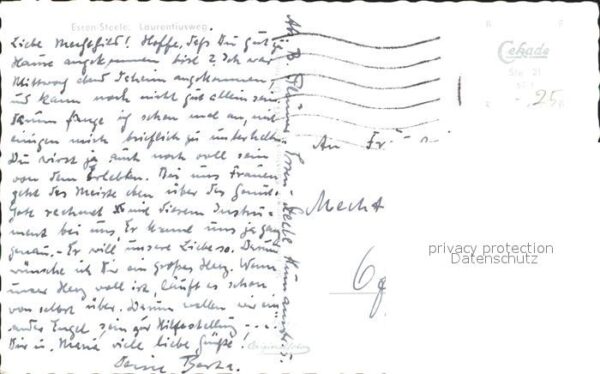 Essen-Steele, Laurentiusweg
Liebe Mechthild! Hoffe, daß Du gut zu
Hause angekommen bist? Ich war
Mittwoch abend daheim angekommen,
und kann noch nicht gut allein sein.
Darum fange ich schon mal an, mit
einigen mich brieflich zu unterhalten.
Du wirst ja auch noch voll sein
von dem Erlebten. Bei uns Frauen
geht das Meiste eben über das Gemüt.
Gott rechnet mit diesem Instru-
ment bei uns, Er kennt uns ja ganz
genau. - Er will unsere Liebe so. Darum
wünsche ich Dir ein großes Herz. Wenn
unser Herz voll ist, läuft es schon
von selbst über. Darum wollen wir ein-
ander Engel sein zur Hilfestellung ...
Dir u. Maria viele liebe Grüße!
Deine Berta.
Essen-Steele
Cekade
Ste 21
-.25
An Fr
Mecht
6
privacy protection
Datenschutz